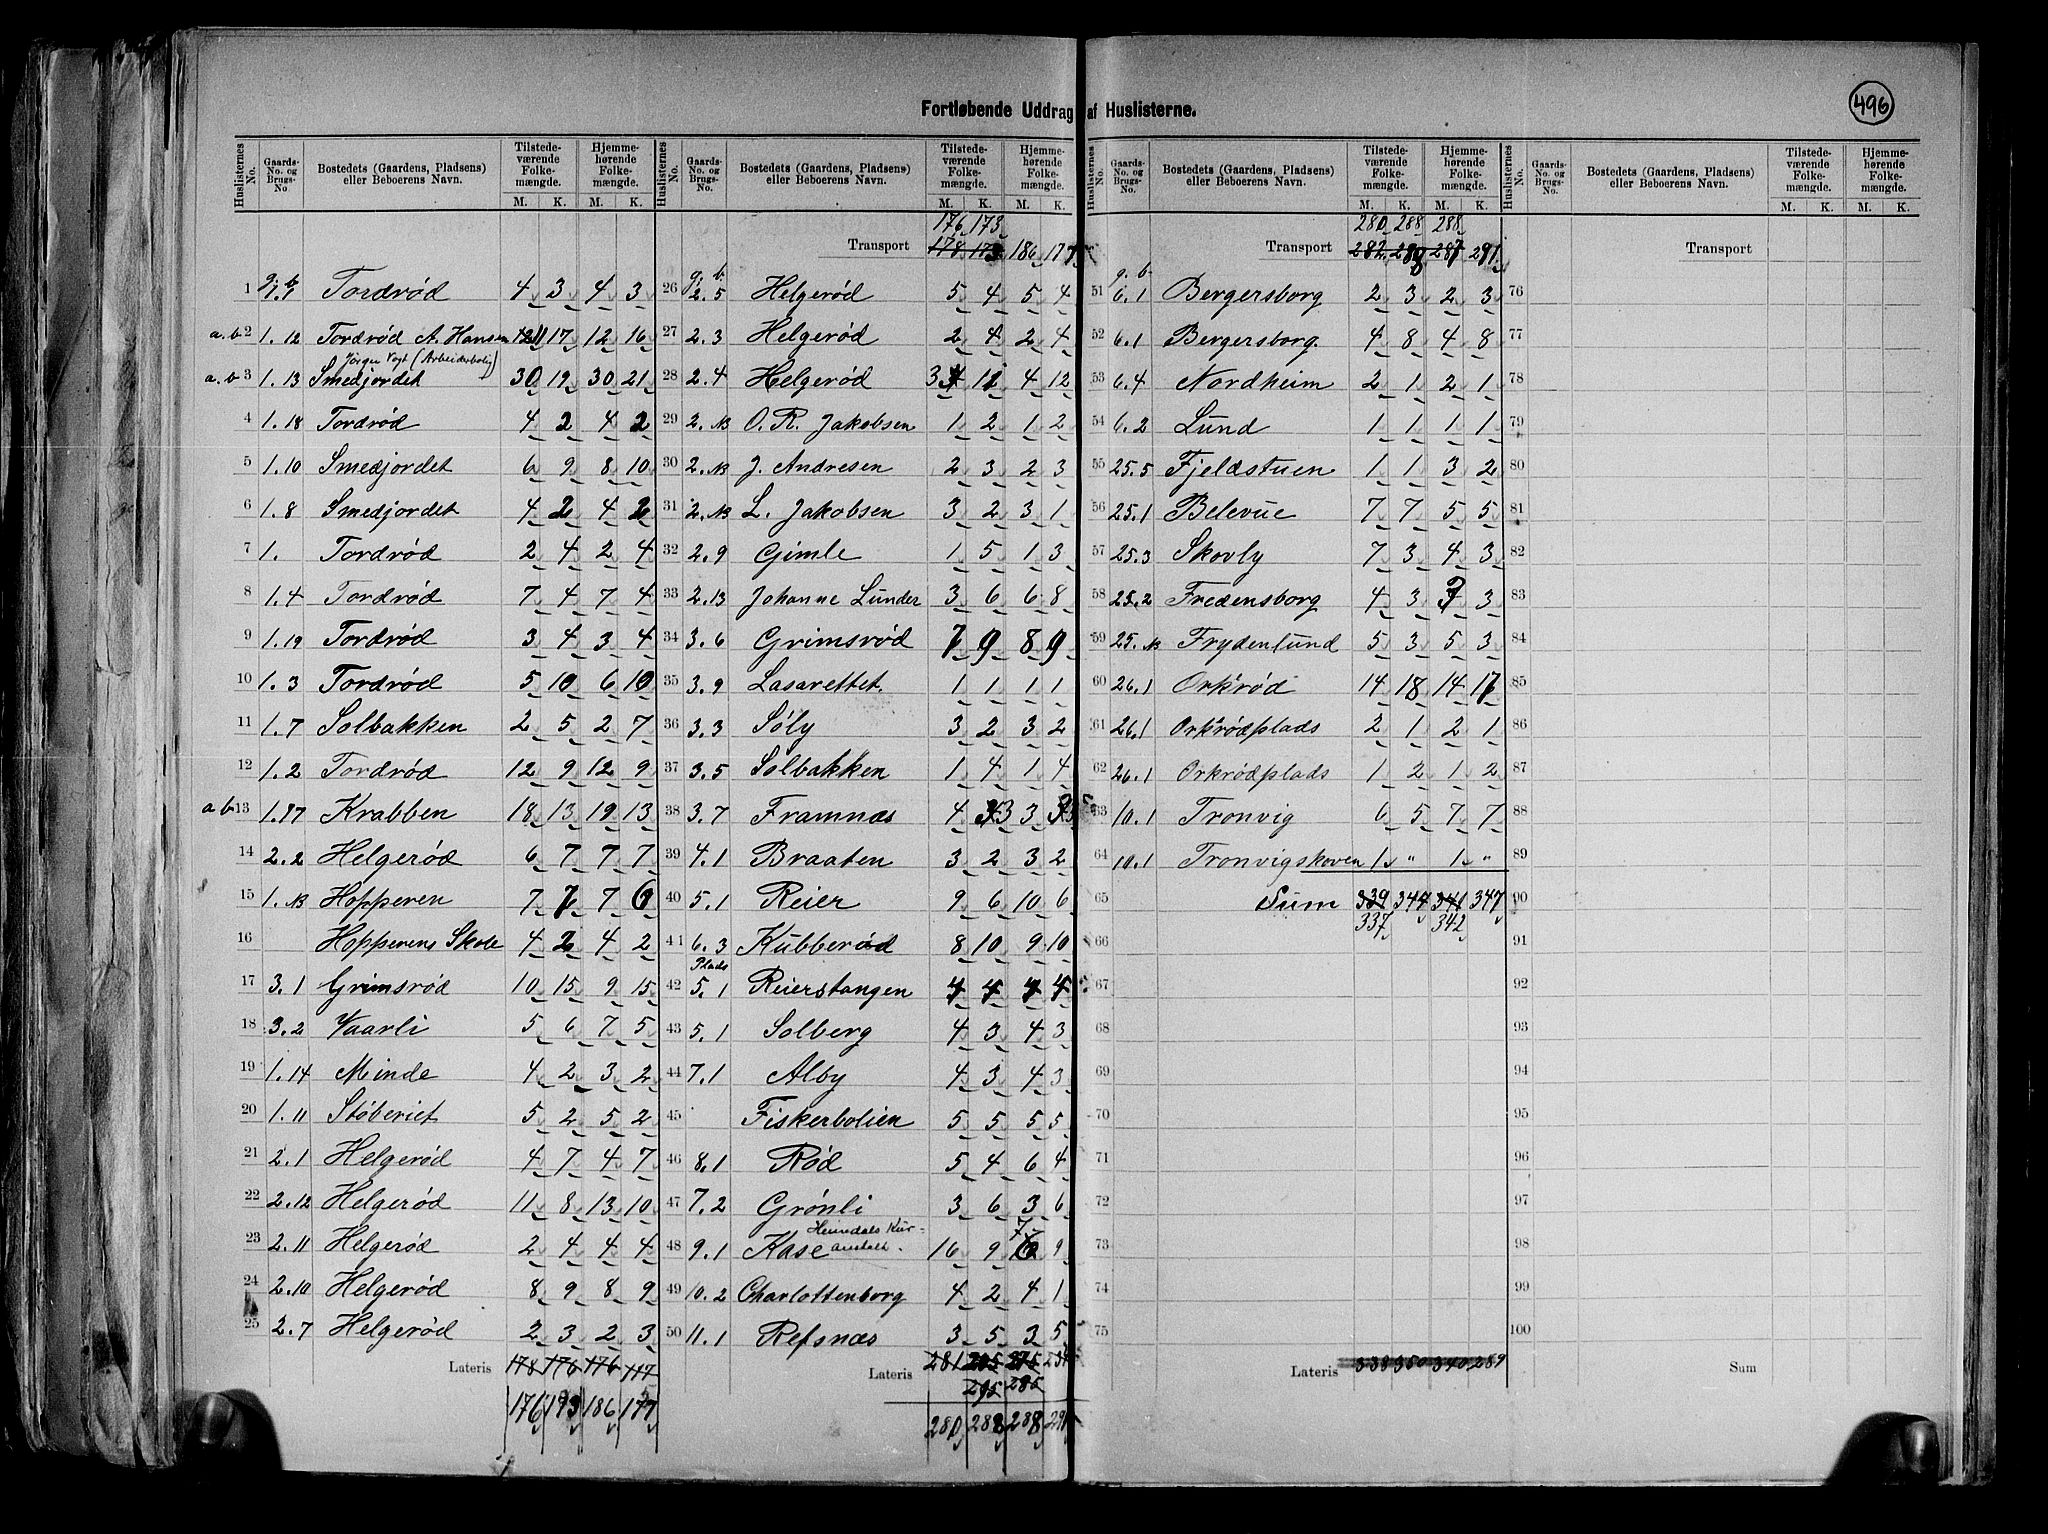 496
Fortløbende Uddrag af Huslisterne.
Huslisternes No. Gaards-No. og Brugs-No. Bostedets (Gaardens, Pladsens) eller Beboerens Navn. Tilstedeværende Folkemængde. M. K. Hjemmehørende Folkemængde. M. K.
1 g. 1. b. 1 Tordrød 4 3 4 3
a. b 2 1. 12 Tordrød A. Hansen 12 11 17 12 16
Jörgen Vogt (Arbeiderbolig)
a. b 3 1. 13 Smedjordet 30 19 30 21
4 1. 18 Tordrød 4 2 4 2
5 1. 10 Smedjordet 6 9 8 10
6 1. 8 Smedjordet 4 2 4 2
7 1. Tordrød 2 4 2 4
8 1. 4 Tordrød 7 4 7 4
9 1. 19 Tordrød 3 4 3 4
10 1. 3 Tordrød 5 10 6 10
11 1. 7 Solbakken 2 5 2 7
12 1. 2 Tordrød 12 9 12 9
a b 13 1. 17 Krabben 18 13 19 13
14 2. 2 Helgerød 6 7 7 7
15 1. Hopperen 7 7 7 6
16 Hopperens Skole 4 2 4 2
17 3. 1 Grimsrød 10 15 9 15
18 3. 2 Vaarli 5 6 7 5
19 1. 14 Minde 4 2 3 2
20 1. 11 Støberiet 5 2 5 2
21 2. 1 Helgerød 4 7 4 7
22 2. 12 Helgerød 11 8 13 10
23 2. 11 Helgerød 2 4 4 4
24 2. 10 Helgerød 8 9 8 9
25 2. 7 Helgerød 2 3 2 3
Lateris 178 176 176 177
176 173 186 177
Huslisternes No. Gaards-No. og Brugs-No. Bostedets (Gaardens, Pladsens) eller Beboerens Navn. Tilstedeværende Folkemængde. M. K. Hjemmehørende Folkemængde. M. K.
176 173
Transport 178 173 186 177
26 g. 2. b 5 Helgerød 5 4 5 4
27 2. 3 Helgerød 2 4 2 4
28 2. 4 Helgerød 3 11 4 12
29 2. O. R. Jakobsen 1 2 1 2
30 2. J. Andresen 2 3 2 3
31 2. L. Jakobsen 3 2 3 1
32 2. 9 Gimle 1 5 1 3
33 2. 13 Johanne Lunder 3 6 6 8
34 3. 6 Grimsrød 7 9 8 9
35 3. 9 Lasarettet 1 1 1 1
36 3. 3 Söly 3 2 3 2
37 3. 5 Solbakken 1 4 1 4
38 3. 7 Framnæs 4 3 3 3
39 4. 1 Braaten 3 2 3 2
40 5. 1 Reier 9 6 10 6
41 6. 3 Kubberød 8 10 9 10
Plads
42 5. 1 Reierstangen 4 4 4 4
43 5. 1 Solberg 4 3 4 3
44 7. 1 Alby 4 3 4 3
45 Fiskerbolien 5 5 5 5
46 8. 1 Rød 5 4 6 4
47 7. 2 Grønli 3 6 3 6
48 9. 1 Kase Heimdals Kuranstalt. 16 9 9
49 10. 2 Charlottenborg 4 2 4 1
50 11. 1 Refsnæs 3 5 3 5
Lateris 281
295 285
280 288 288 291
Huslisternes No. Gaards-No. og Brugs-No. Bostedets (Gaardens, Pladsens) eller Beboerens Navn. Tilstedeværende Folkemængde. M. K. Hjemmehørende Folkemængde. M. K.
280 288 288
Transport 282 288 287 291
51 g. 6. b. 1 Bergersborg 2 3 2 3
52 6. 1 Bergersborg 4 8 4 8
53 6. 4 Nordheim 2 1 2 1
54 6. 2 Lund 1 1 1 1
55 25. 5 Fjeldstuen 1 1 3 2
56 25. 1 Belevue 7 7 5 5
57 25. 3 Skovly 7 3 4 3
58 25. 2 Fredensborg 4 3 3 3
59 25. Frydenlund 5 3 5 3
60 26. 1 Orkrød 14 18 14 17
61 26. 1 Orkrødplads 2 1 2 1
62 26. 1 Orkrødplads 1 2 1 2
63 10. 1 Tronvig 6 5 7 7
64 10. 1 Tronvigskoven 1 " 1 "
65 Sum 339 347 341 347
66 337 342
67
68
69
70
71
72
73
74
75
Lateris 338 350 340 289
Huslisternes No. Gaards-No. og Brugs-No. Bostedets (Gaardens, Pladsens) eller Beboerens Navn. Tilstedeværende Folkemængde. M. K. Hjemmehørende Folkemængde. M. K.
Transport
76
77
78
79
80
81
82
83
84
85
86
87
88
89
90
91
92
93
94
95
96
97
98
99
100
Sum